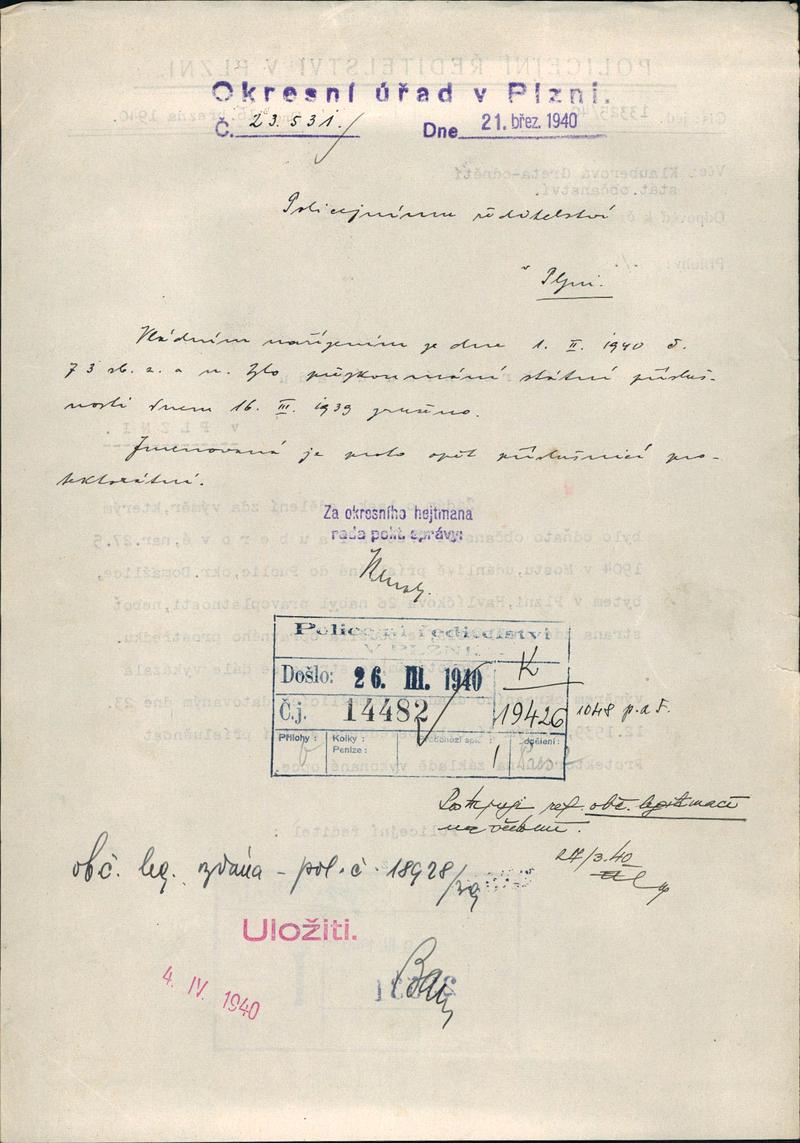 Okresní úřad v Plzni.
Č. 23.531. Dne 21. břez. 1940
Policejnímu ředitelství
v Plzni.
Vládním nařízením ze dne 1. II. 1940 č.
73 sb. z. a n. bylo přezkoumání státní přísluš-
nosti dnem 16. III. 1939 zrušeno.
Jmenovaná je proto opět příslušnicí pro-
tektorátní.
Za okresního hejtmana
rada polit. správy:
Policejní ředitelství
V PLZNI
Došlo: 26. III. 1940 K
Č.j. 14482 19426 1048 p. a 5.
Přílohy: Kolky: Předchozí spis: oddělení:
Peníze: 1
Postupuji ref. obč. legitimací
27/3.40
obč. leg. vydána - pol. č. 18928/39
Uložiti.
4. IV. 1940